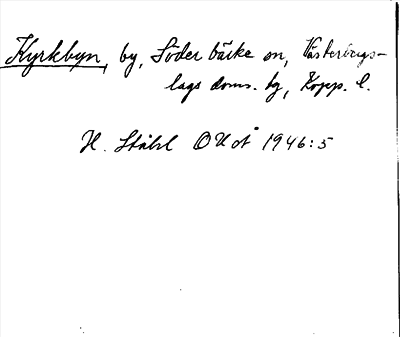 Kyrkbyn, by, Söderbärke sn, Västerbergs-
lags doms. hg, Kopp. l.
H. Ståhl OUÅ 1946:5